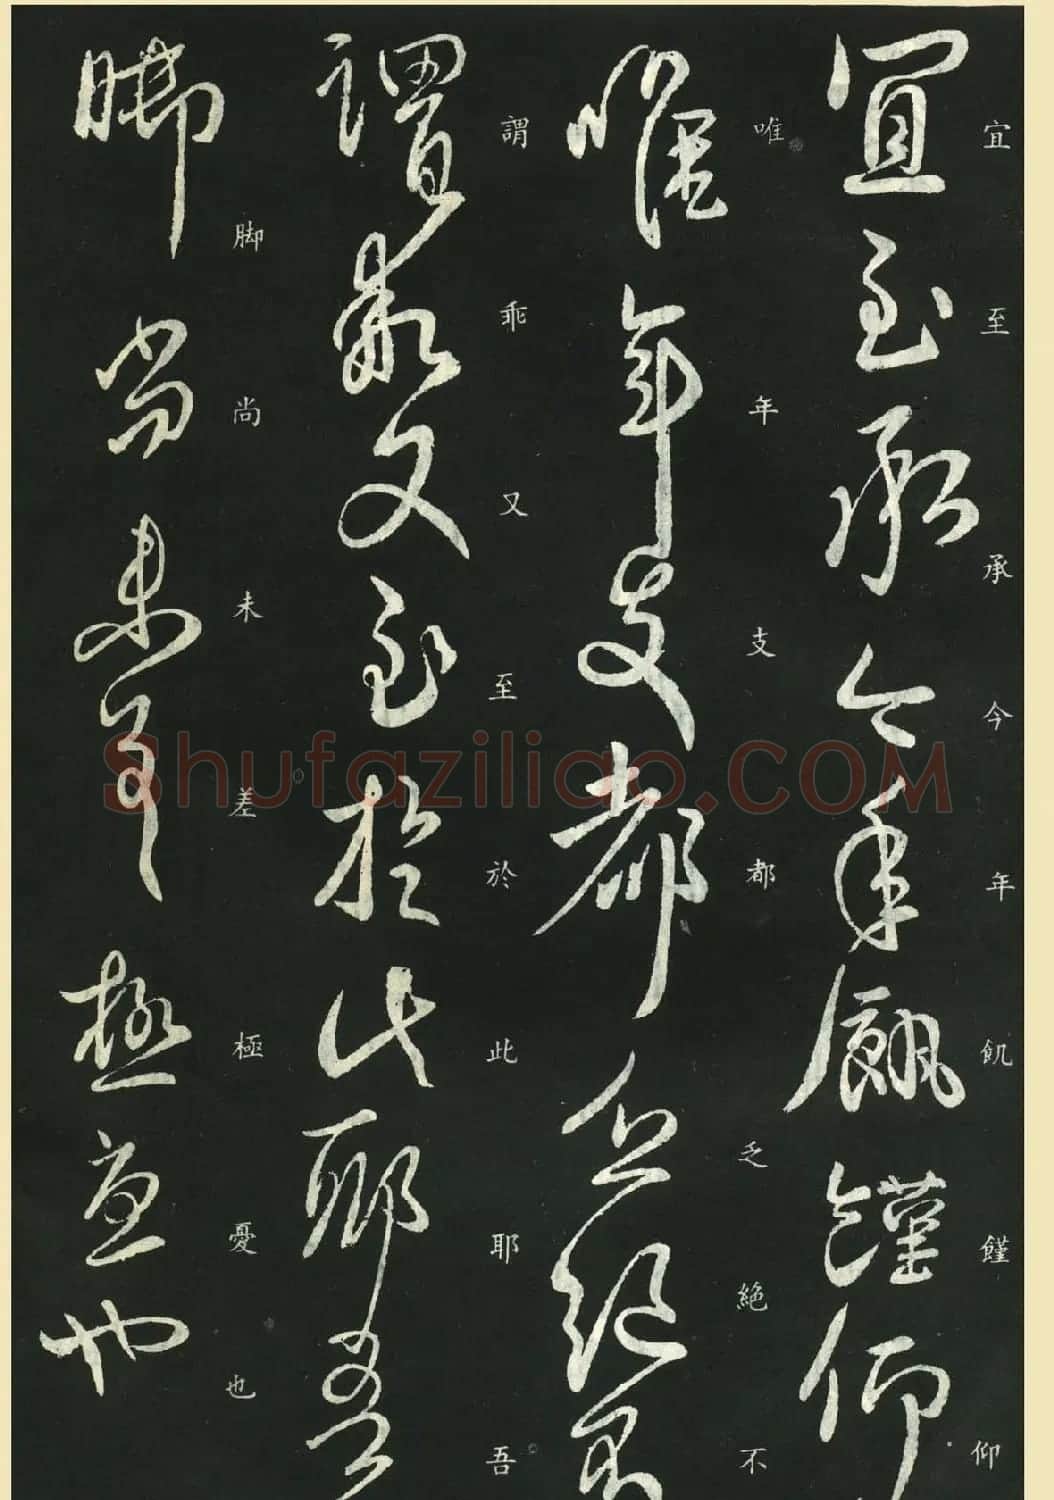 宜至承今年飢饉仰
唯年支都乏絶不
謂乖又至於此耶吾
脚尚未差極憂也
Shufaziliao.COM